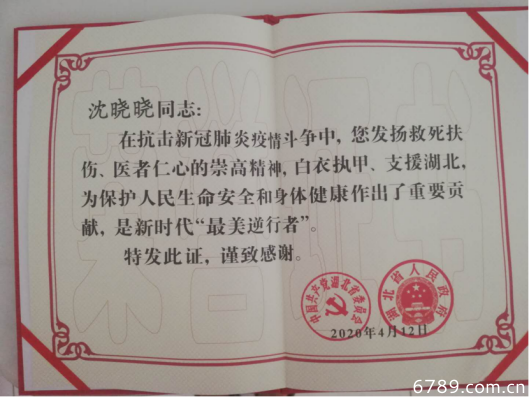 沈晓晓同志：
在抗击新冠肺炎疫情斗争中，您发扬救死扶
伤、医者仁心的崇高精神，白衣执甲、支援湖北，
为保护人民生命安全和身体健康作出了重要贡
献，是新时代“最美逆行者”。
特发此证，谨致感谢。
中国共产党湖北省委员会
湖北省人民政府
2020年4月12日
6789.com.cn